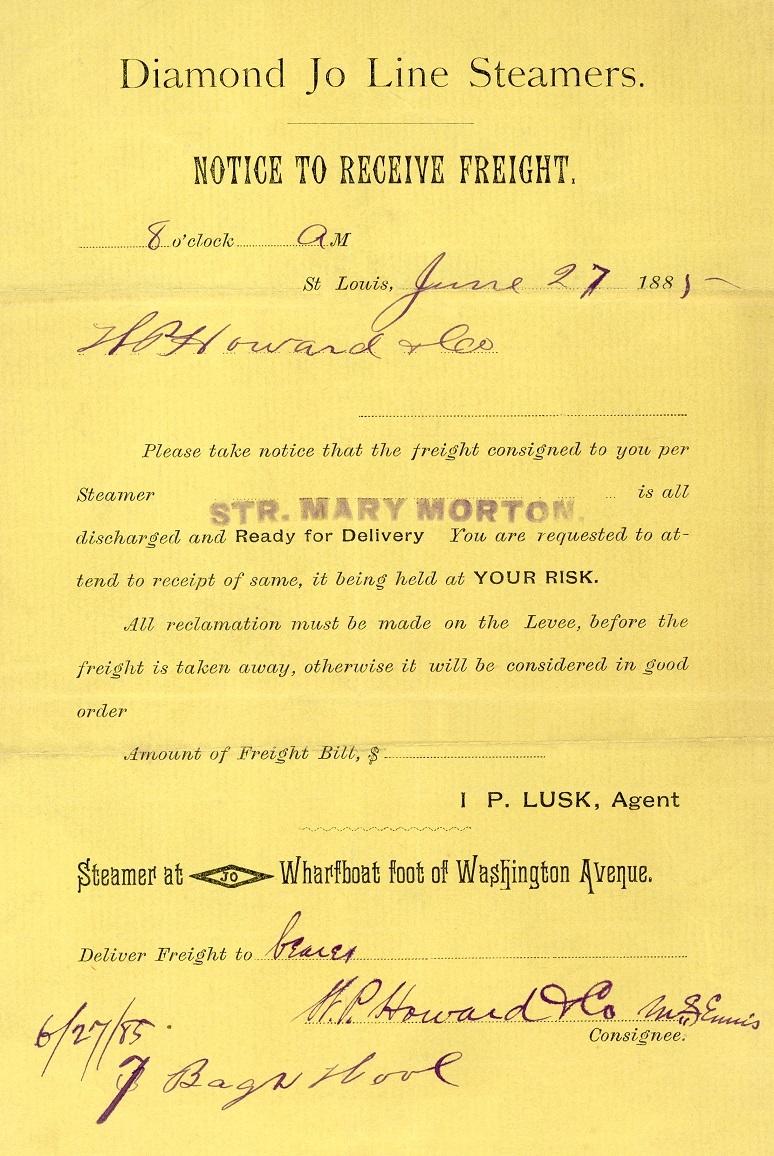 Diamond Jo Line Steamers.
NOTICE TO RECEIVE FREIGHT.
8 o'clock a M
St Louis, June 27 1885
W P Howard & Co
Please take notice that the freight consigned to you per
Steamer STR. MARY MORTON. is all
discharged and Ready for Delivery You are requested to at-
tend to receipt of same, it being held at YOUR RISK.
All reclamation must be made on the Levee, before the
freight is taken away, otherwise it will be considered in good
order
Amount of Freight Bill, $
I P. LUSK, Agent
Steamer at JO Wharfboat foot of Washington Avenue.
Deliver Freight to bearer
W. P. Howard & Co
Consignee.
6/27/85
7 Bags Wool